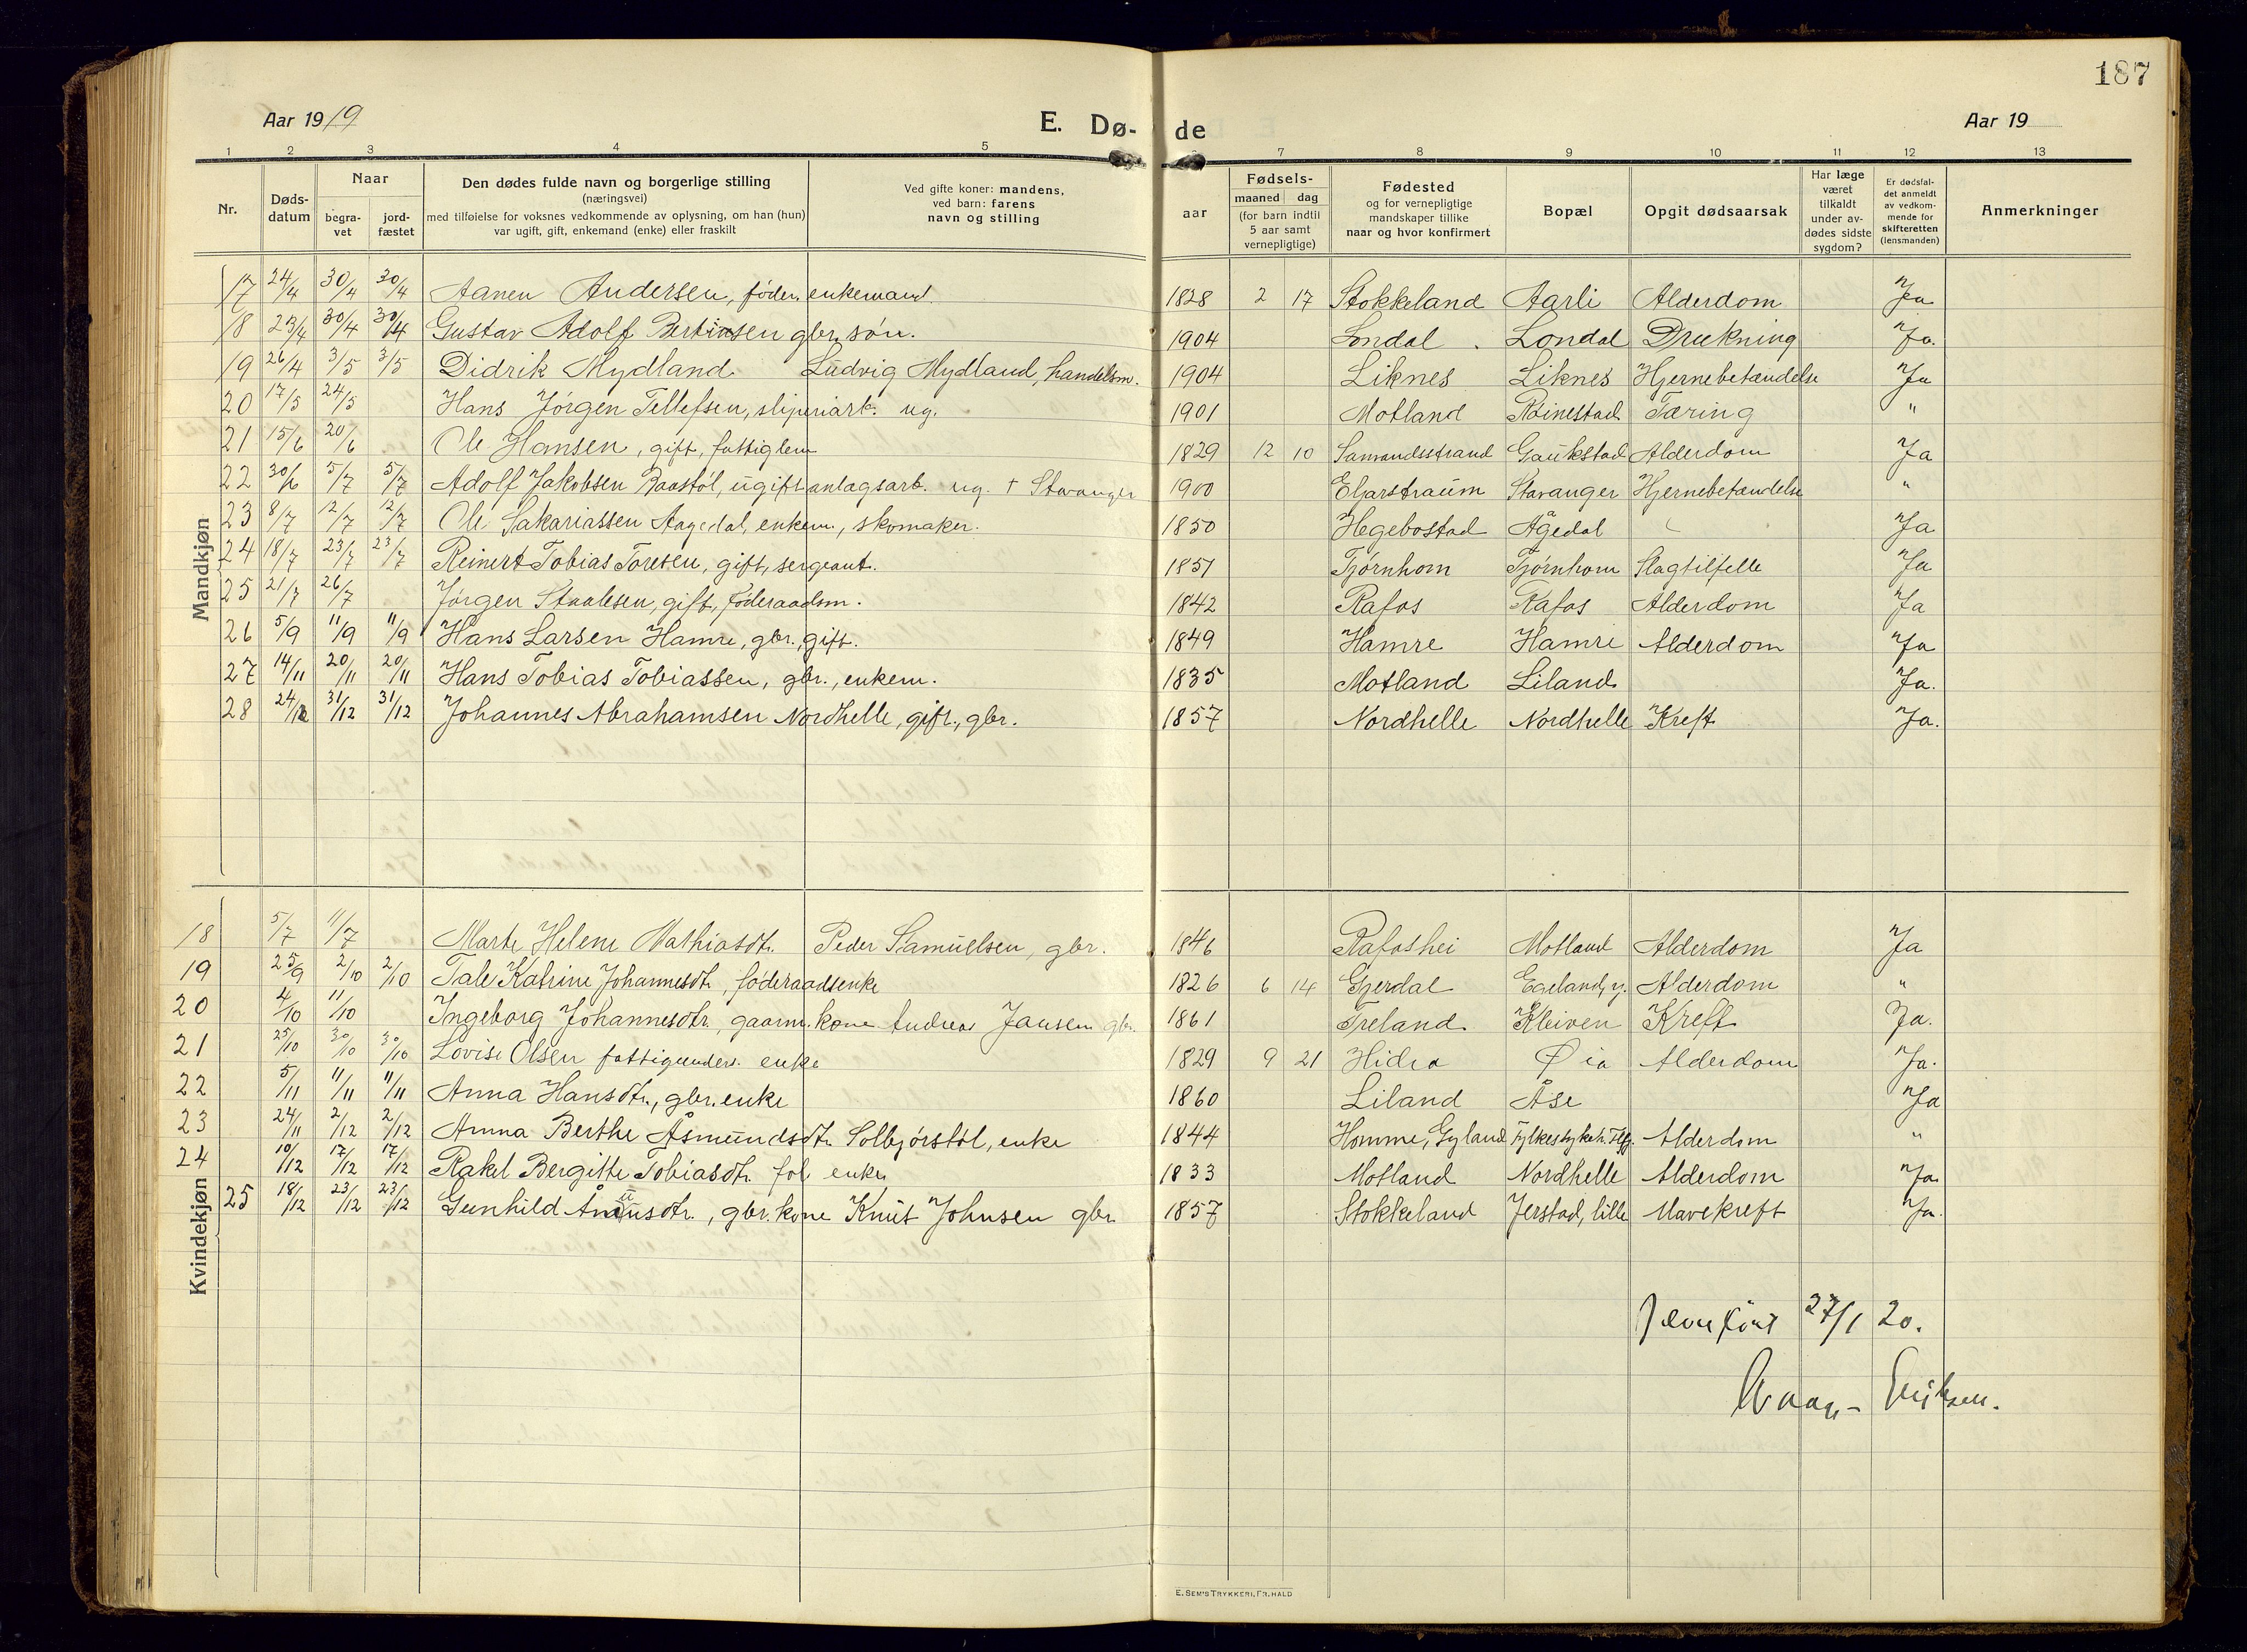 187
Aar 1919 E. Dø- de Aar 19
1 2 3 4 5 7 8 9 10 11 12 13
Nr.
Døds-
datum
Naar
begra-
vet
jord-
fæstet
Den dødes fulde navn og borgerlige stilling
(næringsvei)
med tilføielse for voksnes vedkommende av oplysning, om han (hun)
var ugift, gift, enkemand (enke) eller fraskilt
Ved gifte koner: mandens,
ved barn: farens
navn og stilling
aar
Fødsels-
maaned dag
(for barn indtil
5 aar samt
vernepligtige)
Fødested
og for vernepligtige
mandskaper tillike
naar og hvor konfirmert
Bopæl
Opgit dødsaarsak
Har læge
været
tilkaldt
under av-
dødes sidste
sygdom?
Er dødsfal-
det anmeldt
av vedkom-
mende for
skifteretten
(lensmanden)
Anmerkninger
Mandkjøn
17 24/4 30/4 30/4 Aanen Andersen, føder. enkemand. 1828 2 17 Stokkeland Aarli Alderdom Ja
18 23/4 30/4 30/4 Gustav Adolf Bertinsen gbr. søn. 1904 Londal Londal Drukning Ja.
19 26/4 3/5 3/5 Didrik Mydland Ludvig Mydland, handelsm. 1904 Liknes Liknes Hjernebetændelse Ja
20 17/5 24/5 Hans Jörgen Tellefsen, sliperiarb. ug. 1901 Motland Reinestad Tæring "
21 15/6 20/6 Ole Hansen, gift, fattiglem 1829 12 10 Samandsstrand Gaukstad Alderdom Ja
22 30/6 5/7 5/7 Adolf Jakobsen Raastöl, ugift anlægsarb. ug. † Stavanger 1900 Eljarstraum Stavanger Hjernebetændelse "
23 8/7 12/7 12/7 Ole Sakariassen Aagedal, enkem., skomaker. 1850 Hegebostad Ågedal Ja
24 18/7 23/7 23/7 Reinert Tobias Toresen, gift, sergeant. 1851 Tjørnhom Tjørnhom Slagtilfelle Ja
25 21/7 26/7 Jörgen Staalesen, gift, föderaadsm. 1842 Rafos Rafos Alderdom Ja
26 5/9 11/9 11/9 Hans Larsen Hamre, gbr., gift. 1849 Hamre Hamre Alderdom Ja
27 14/11 20/11 20/11 Hans Tobias Tobiassen, gbr., enkem. 1835 Motland Liland Ja.
28 24/12 31/12 31/12 Johannes Abrahamsen Nordhelle, gift, gbr. 1857 Nordhelle Nordhelle Kreft Ja.
Kvindekjøn
18 5/7 11/7 Marte Helene Mathiasdtr. Peder Samuelsen, gbr. 1846 Rafoshei Motland Alderdom Ja
19 25/9 2/10 2/10 Tale Katrine Johannesdtr, föderaadsenke 1826 6 14 Gjerdal Egeland, y. Alderdom "
20 4/10 11/10 Ingeborg Johannesdtr., gaarm. kone Andreas Jansen gbr. 1861 Treland Kleiven Kreft Ja.
21 25/10 30/10 30/10 Lovise Olsen fattigunders. enke 1829 9 21 Hidra Øia Alderdom Ja.
22 5/11 11/11 11/11 Anna Hansdtr., gbr. enke 1860 Liland Åse Ja
23 24/11 2/12 2/12 Anna Berthe Åsmundsdtr. Solbjørstöl, enke 1844 Homme, Gyland Fylkessykeh. Flfj. Alderdom "
24 10/12 17/12 17/12 Rakel Bergitte Tobiasdtr. fol. enke 1833 Motland Nordhelle Alderdom Ja.
25 18/12 23/12 23/12 Gunhild dtr., gbr. kone Knut Johnsen gbr. 1857 Stokkeland Jerstad, lille Mavekreft Ja.
Jevnført 27/1 20.
Eriksen.
E. SEM'S TRYKKERI, FR. HALD